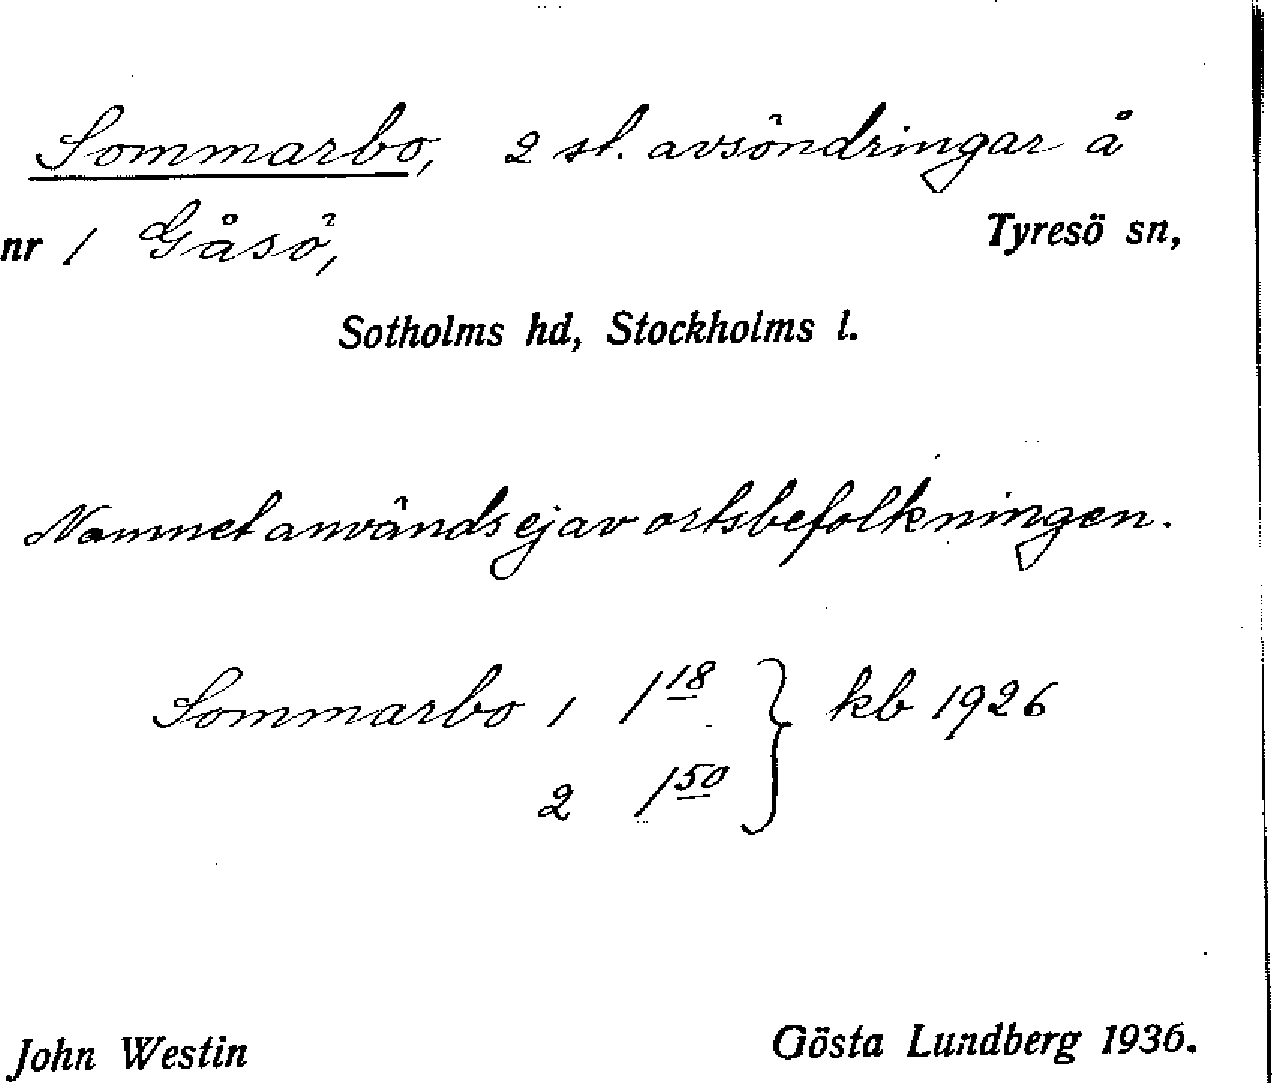 Sommarbo, 2 st. avsöndringar å
nr 1 Gåsö, Tyresö sn,
Sotholms hd, Stockholms l.
Namnet används ej av ortsbefolkningen.
Sommarbo 1 1 18 } kb 1926
2 1 50
John Westin Gösta Lundberg 1936.